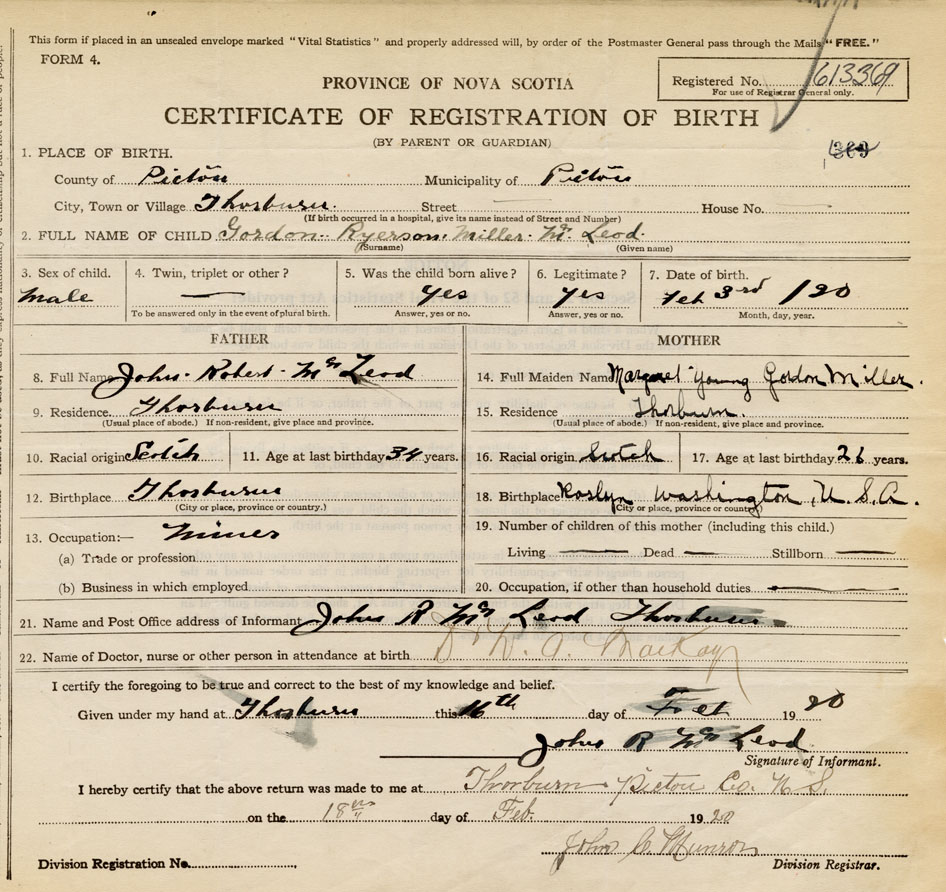 This form if placed in an unsealed envelope marked "Vital Statistics" and properly addressed will, by order of the Postmaster General pass through the Mails "FREE."
FORM 4.
PROVINCE OF NOVA SCOTIA
Registered No. 613369
For use of Registrar General only.
CERTIFICATE OF REGISTRATION OF BIRTH
(BY PARENT OR GUARDIAN)
1. PLACE OF BIRTH.
County of Pictou Municipality of Pictou
City, Town or Village Thorburn. Street House No.
(If birth occurred in a hospital, give its name instead of Street and Number)
2. FULL NAME OF CHILD Gordon Ryerson Miller Mc Leod
(Surname) (Given name)
3. Sex of child. 4. Twin, triplet or other? 5. Was the child born alive? 6. Legitimate? 7. Date of birth.
Male — yes yes Feb 3rd / 20
To be answered only in the event of plural birth. Answer, yes or no. Answer, yes or no. Month, day, year.
FATHER MOTHER
8. Full Name John Robert Mc Leod 14. Full Maiden Name Margaret Young Gordon Miller.
9. Residence Thorburn 15. Residence Thorburn.
(Usual place of abode.) If non-resident, give place and province. (Usual place of abode.) If non-resident, give place and province.
10. Racial origin Scotch 11. Age at last birthday 34 years. 16. Racial origin Scotch 17. Age at last birthday 26 years.
12. Birthplace Thorburn 18. Birthplace Roslyn Washington, U. S. A.
(City or place, province or country) (City or place, province or country)
13. Occupation:— Miner 19. Number of children of this mother (including this child.)
(a) Trade or profession Living — Dead — Stillborn —
(b) Business in which employed 20. Occupation, if other than household duties
21. Name and Post Office address of Informant John R Mc Leod Thorburn
22. Name of Doctor, nurse or other person in attendance at birth Dr W. A. MacKay
I certify the foregoing to be true and correct to the best of my knowledge and belief.
Given under my hand at Thorburn this 16th day of Feb 19 20
John R Mc Leod
Signature of Informant.
I hereby certify that the above return was made to me at Thorburn Pictou Co. N. S.
on the 18 day of Feb. 19 20
John C. Munro
Division Registration No. Division Registrar.